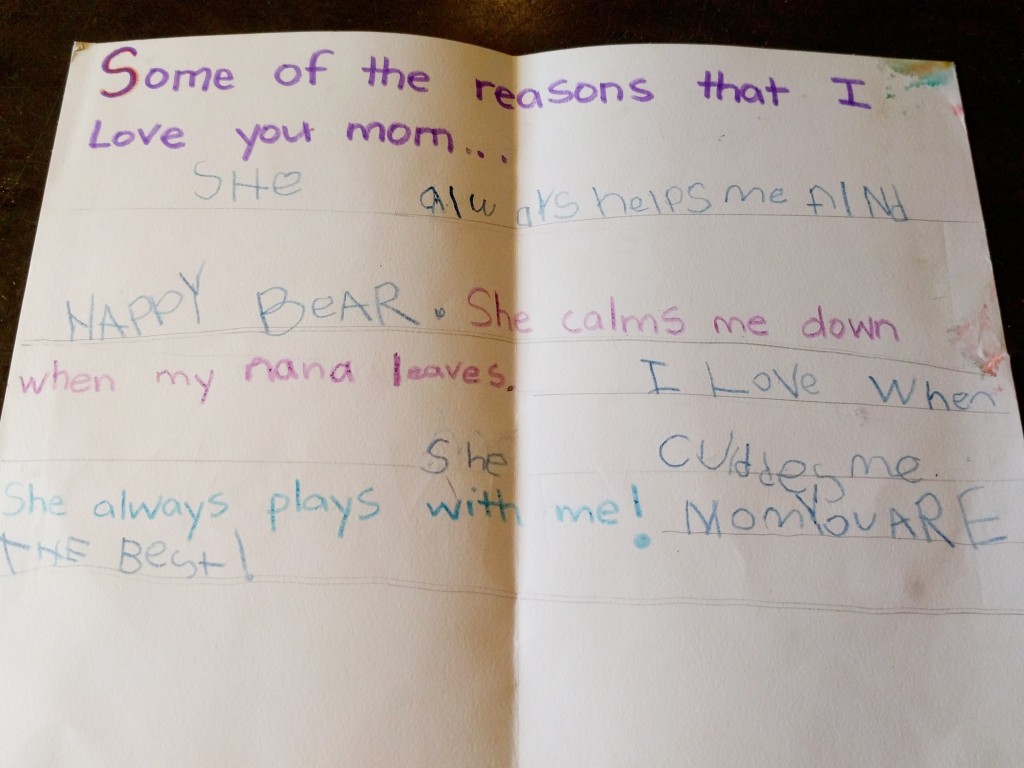 Some of the reasons that I
Love you mom...
SHe always helps me fINd
HAPPY BeAR. She calms me down
when my nana leaves. I Love when
She cuddes me.
She always plays with me! Mom You ARE
THE Best!